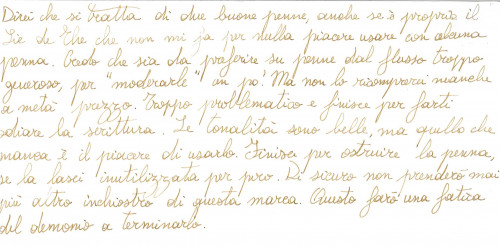 Direi che si tratta di due buone penne, anche se è proprio il
Lie de Thé che non mi fa per nulla piacere usare con alcuna
penna. Credo che sia da preferire su penne dal flusso troppo
generoso, per "moderarle" un po'. Ma non lo ricomprerei neanche
a metà prezzo. Troppo problematico e finisce per farti
odiare la scrittura. Le tonalità sono belle, ma quello che
manca è il piacere di usarlo. Finisci per ostruire la penna,
se la lasci inutilizzata per pro. Di sicuro non prenderò mai
più altro inchiostro di questa marca. Questo farò una fatica
del demonio a terminarlo.